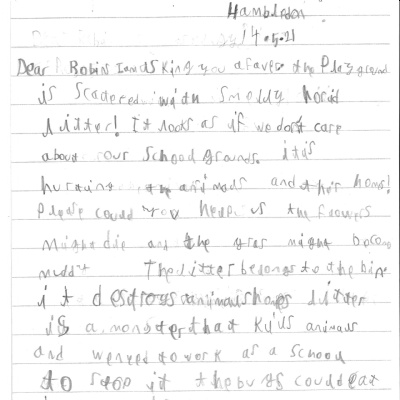 Hambledon
14.5.21
Dear Robins I am asking you a faver the Playground
is scatered with smelly horid
litter! It loots as if we don't care
about our School grounds. it is
hurting the animals and their homs!
Please could you heelp us the flowers
might die and the gras might become
The litter belongs to the bin
it destroys animals homes litter
is a monster that kills animals
and we need to work as a school
to stop it the bugs could eat